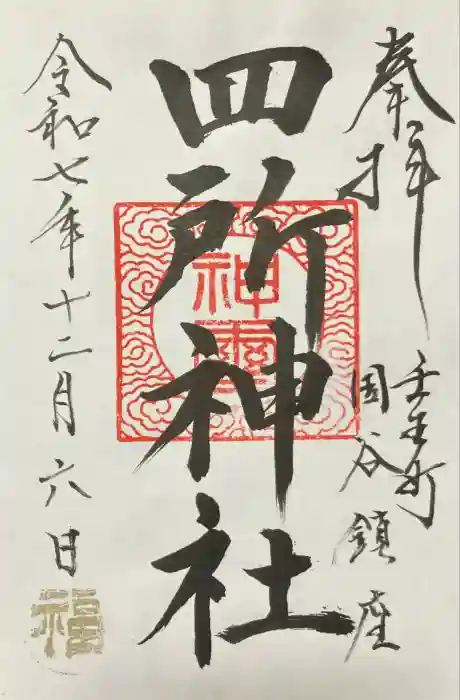 奉拝
壬生町
国谷鎮座
四所神社
神璽
令和七年十二月六日